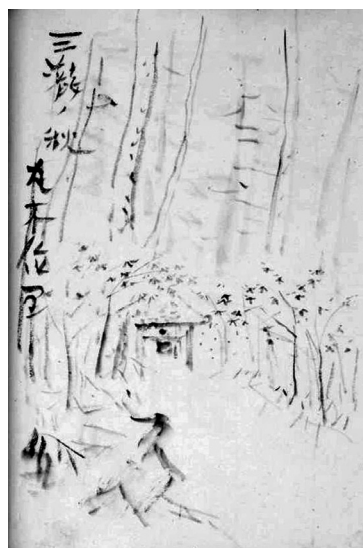 三瀧ノ秋
丸木位里